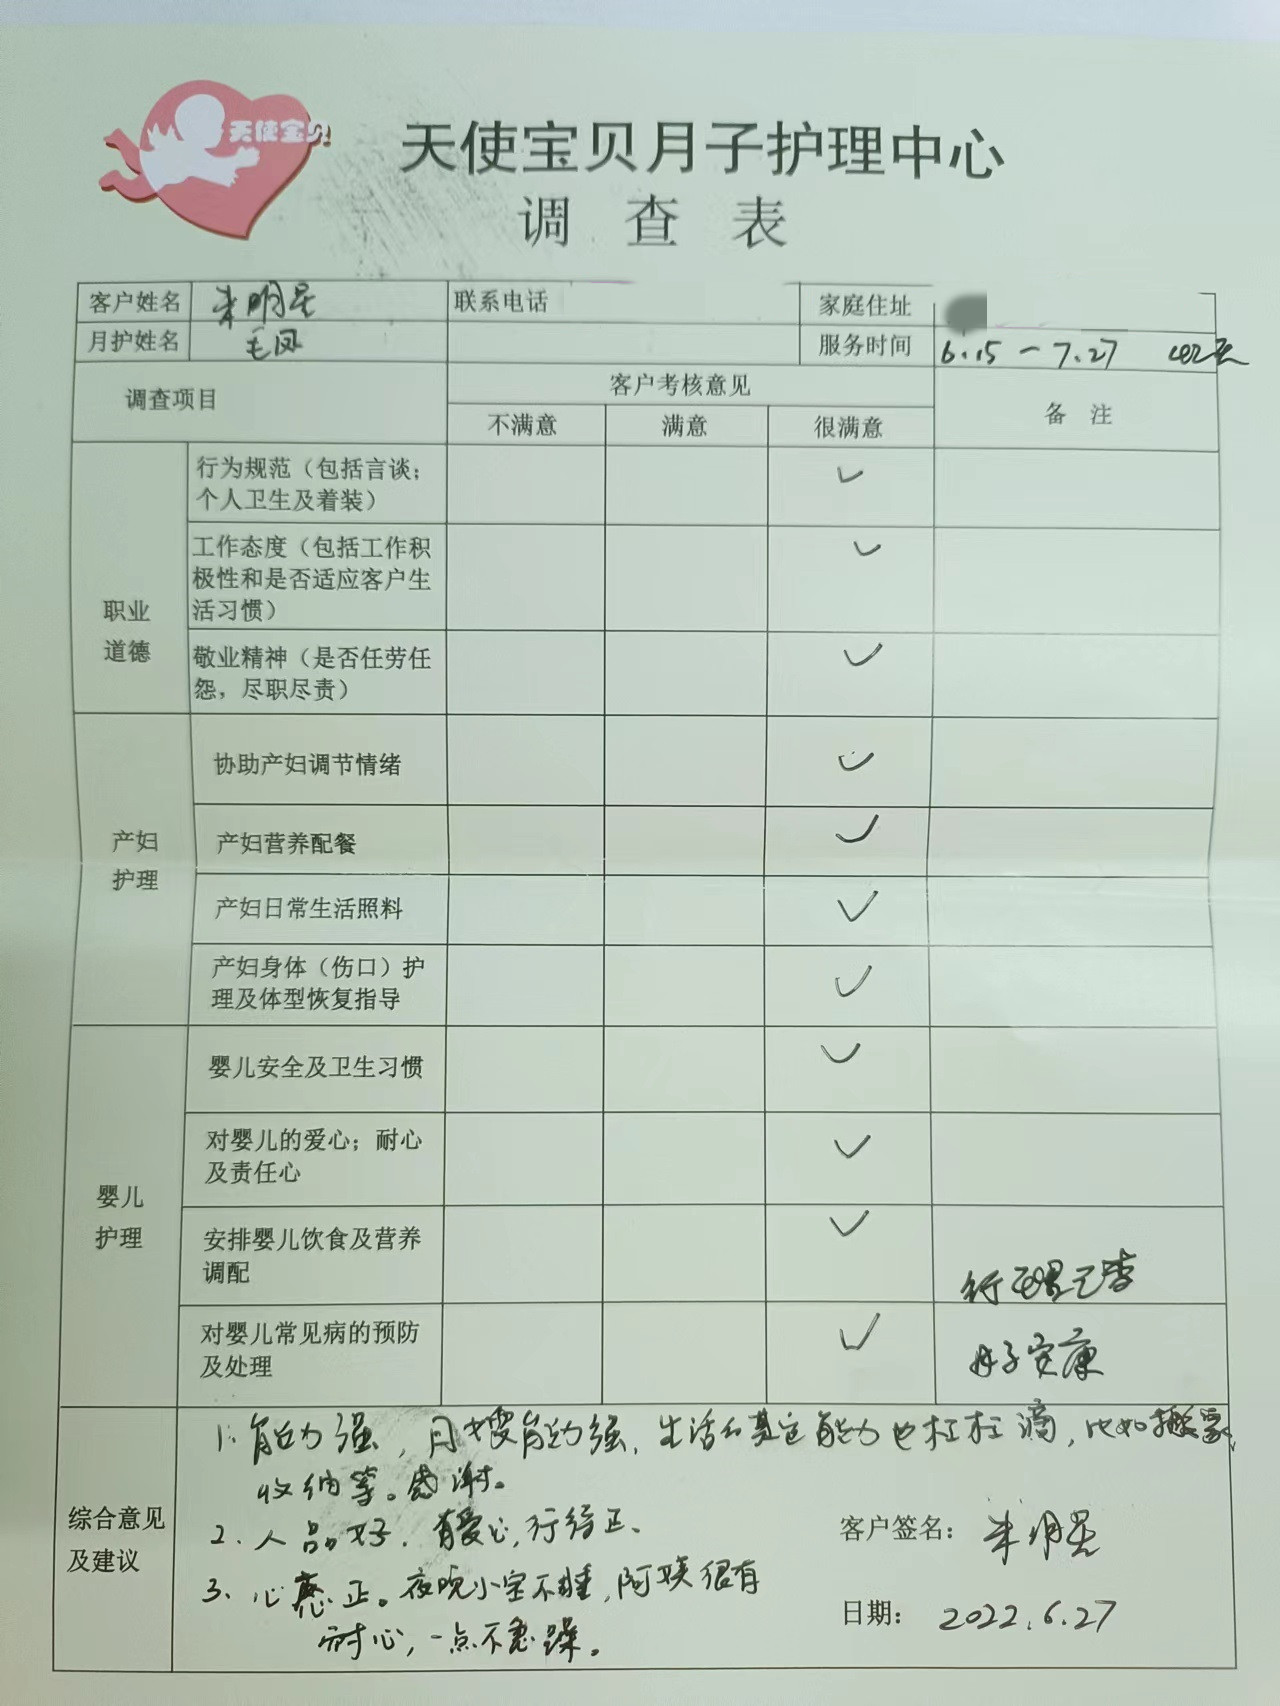 天使宝贝
天使宝贝月子护理中心
调 查 表
客户姓名 朱明星 联系电话 家庭住址
月护姓名 毛凤 服务时间 6.15－7.27 42天
调查项目 客户考核意见 备 注
不满意 满意 很满意
行为规范（包括言谈；
个人卫生及着装） ✓
工作态度（包括工作积
极性和是否适应客户生
活习惯） ✓
职业
道德
敬业精神（是否任劳任
怨，尽职尽责） ✓
协助产妇调节情绪 ✓
产妇
护理
产妇营养配餐 ✓
产妇日常生活照料 ✓
产妇身体（伤口）护
理及体型恢复指导 ✓
婴儿安全及卫生习惯 ✓
对婴儿的爱心；耐心
及责任心 ✓
婴儿
护理
安排婴儿饮食及营养
调配 ✓
对婴儿常见病的预防
及处理 ✓
综合意见
及建议
1. 能力强，月嫂能力强，生活和其它能力也杠杠滴，比如搬家
收纳等。感谢。
2. 人品好，有爱心，行络正、
3. 心态正。夜晚小宝不睡，阿姨很有
耐心，一点不急躁。
客户签名： 朱明星
日期： 2022.6.27